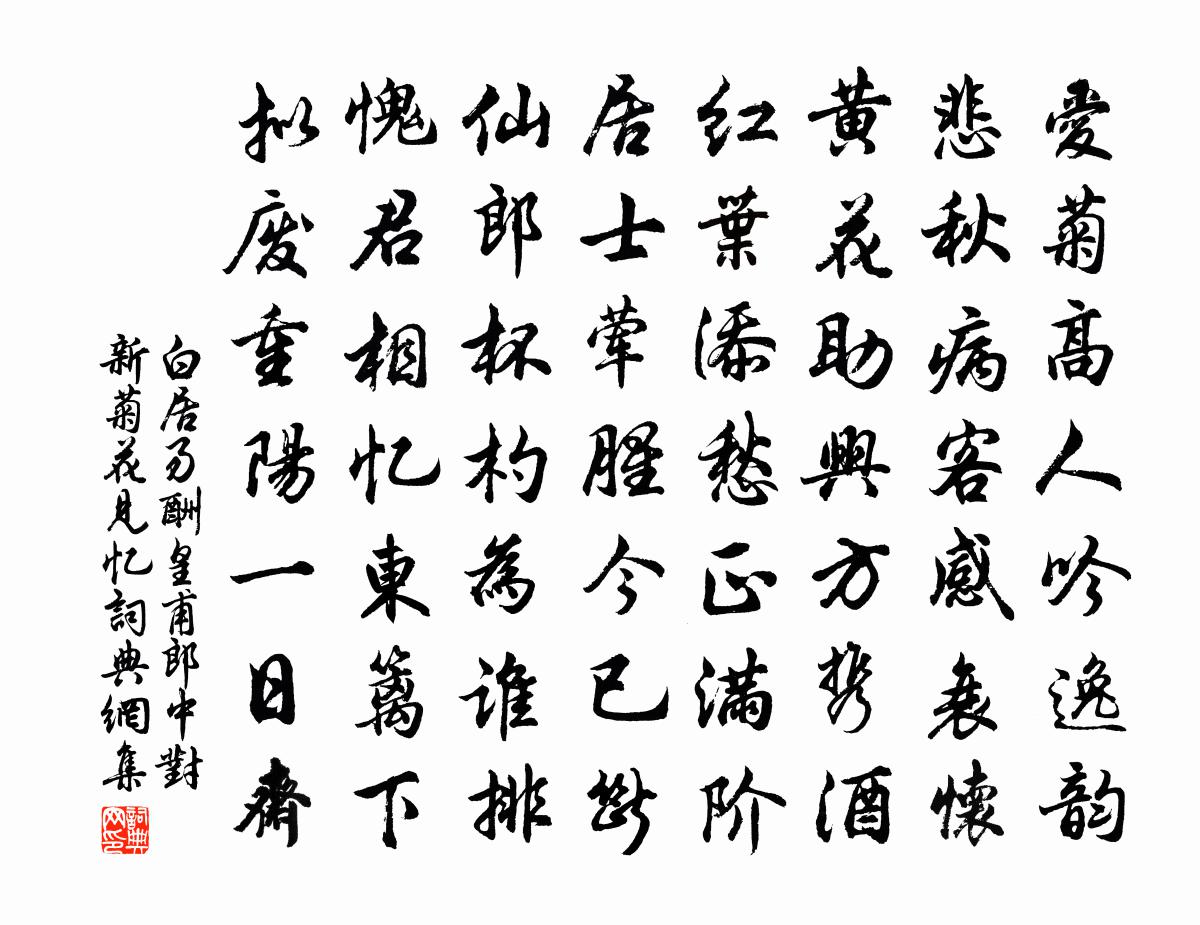 愛菊高人吟逸韵
悲秋病客感衰懷
黄花助興方携酒
紅葉添愁正滿阶
居士葷腥今已斷
仙郎杯杓為誰排
愧君相忆東籬下
拟废重陽一日齋
白居易酬皇甫郎中對
新菊花見忆詞典網集
詞典
网印